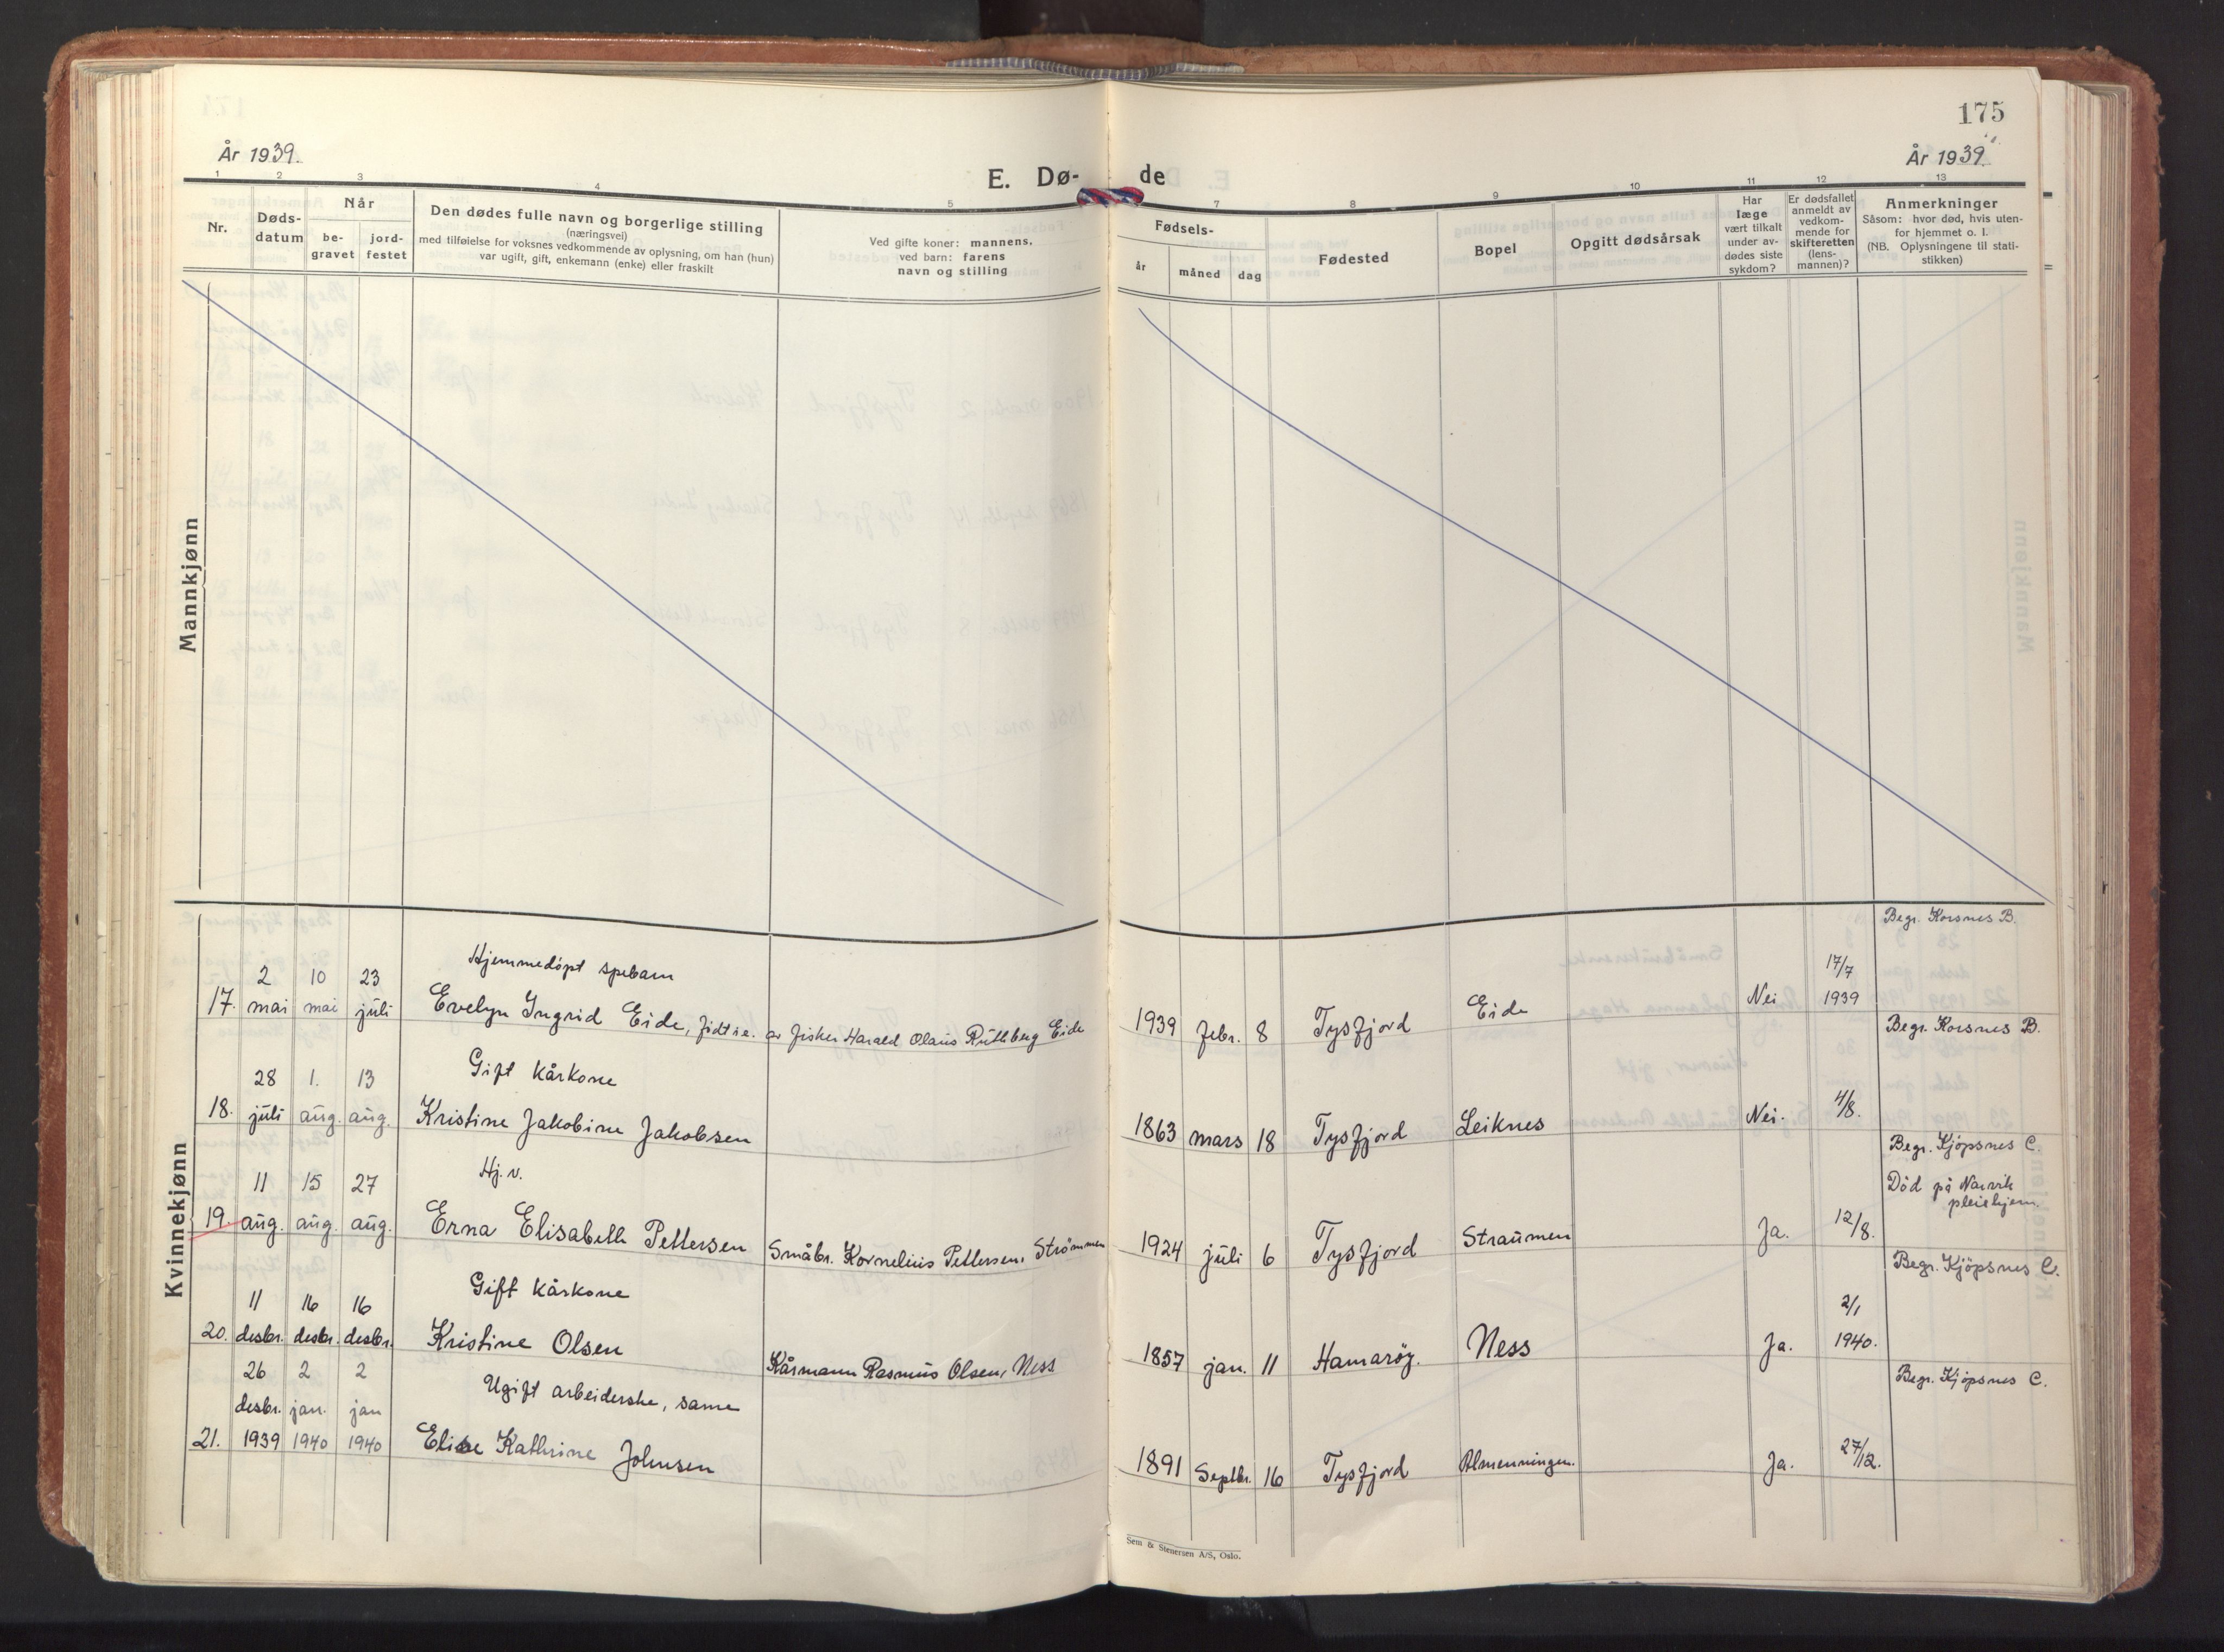 175
År 1939.
År 1939
E. Dø-
de
1 2 3 4 5 7 8 9 10 11 12 13
Nr.
Døds-
datum
Når
be-
gravet
jord-
festet
Den dødes fulle navn og borgerlige stilling
(næringsvei)
med tilføielse for voksnes vedkommende av oplysning, om han (hun)
var ugift, gift, enkemann (enke) eller fraskilt
Ved gifte koner: mannens.
ved barn: farens
navn og stilling
Fødsels-
år
måned
dag
Fødested
Bopel
Opgitt dødsårsak
Har
læge
vært tilkalt
under av-
dødes siste
sykdom?
Er dødsfallet
anmeldt av
vedkom-
mende for
skifteretten
(lens-
mannen)?
Anmerkninger
Såsom: hvor død, hvis uten-
for hjemmet o. l.
(NB. Oplysningene til stati-
stikken)
Mannkjønn
Kvinnekjønn
Begr. Korsnes B.
Hjemmedöpt spebarn
2 10 23
17/7
17. mai mai juli Evelyn Ingrid Eide, fidt i e. av fisker Harald Olaus Ruthberg Eide 1939 febr. 8 Tysfjord Eide Nei 1939
Begr. Korsnes B.
28 1. 13 Gift kårkone
18. juli aug. aug. Kristine Jakobine Jakobsen 1863 mars 18 Tysfjord Leiknes Nei. 4/8.
Begr. Kjöpsnes C.
11 15 27 Hj. v.
Död på Narvik
pleiehjem.
19. aug. aug. aug. Erna Elisabeth Pettersen Småbr. Kornelius Pettersen, Strömmen 1924 juli 6 Tysfjord Straumen Ja. 12/8.
Begr. Kjöpsnes C.
11 16 16 Gift kårkone
2/1
20. desbr. desbr. desbr. Kristine Olsen Kårmann Rasmus Olsen, Ness 1857 jan. 11 Hamaröy. Ness Ja. 1940.
Begr. Kjöpsnes C.
26 2 2
desbr. jan. jan Ugift arbeiderske, same
21. 1939 1940 1940 Elise Kathrine Johnsen 1891 Septbr. 16 Tysfjord Almenningen. Ja. 27/12.
Sem & Stenersen A/S, Oslo.